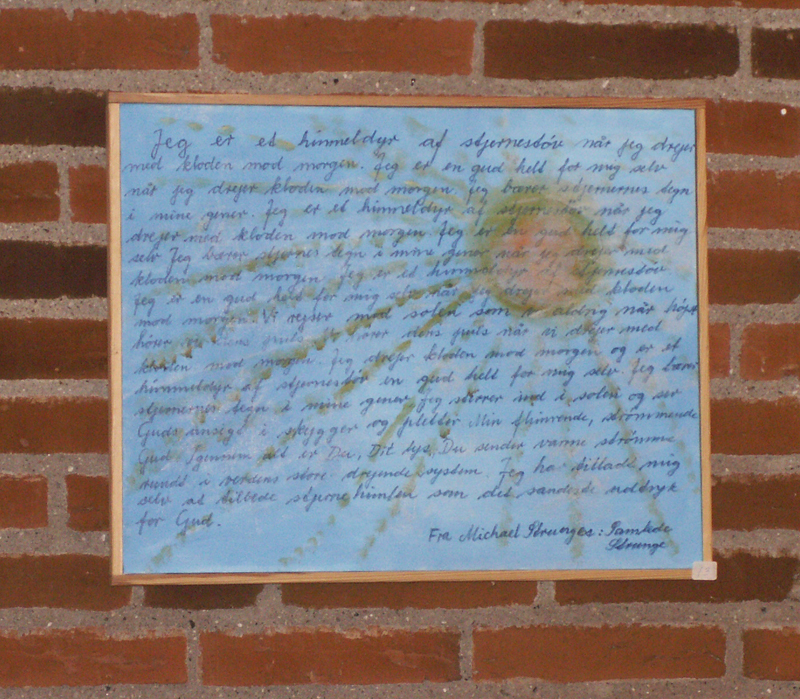 Jeg er et himmeldyr af stjernestøv når jeg drejer
med kloden mod morgen. Jeg er en gud helt for mig selv
når jeg drejer kloden mod morgen Jeg bærer stjernernes tegn
i mine gener. Jeg er et himmeldyr af stjernestøv når jeg
drejer med kloden mod morgen. Jeg er en gud helt for mig
selv Jeg bærer stjernes tegn i mine gener når jeg drejer med
kloden mod morgen. Jeg er et himmeldyr af stjernestøv
Jeg er en gud helt for mig selv når jeg drejer med kloden
mod morgen. Vi rejser mod solen som vi aldrig når højst
hører vi dens puls. Vi hører dens puls når vi drejer med
kloden mod morgen. Jeg drejer kloden mod morgen og er et
himmeldyr af stjernestøv en gud helt for mig selv. Jeg bærer
stjernernes tegn i mine gener Jeg stirrer ind i solen og ser
Guds ansigt i skygger og pletter Min flimrende, strømmende
Gud Igennem alt er Du, Dit lys, Du sender varme strømme
rundt i verdens store drejende system. Jeg har tilladt mig
selv at tilbede stjernehimlen som det sandeste udtryk
for Gud.
Fra Michael Strunges: Samlede
Strunge